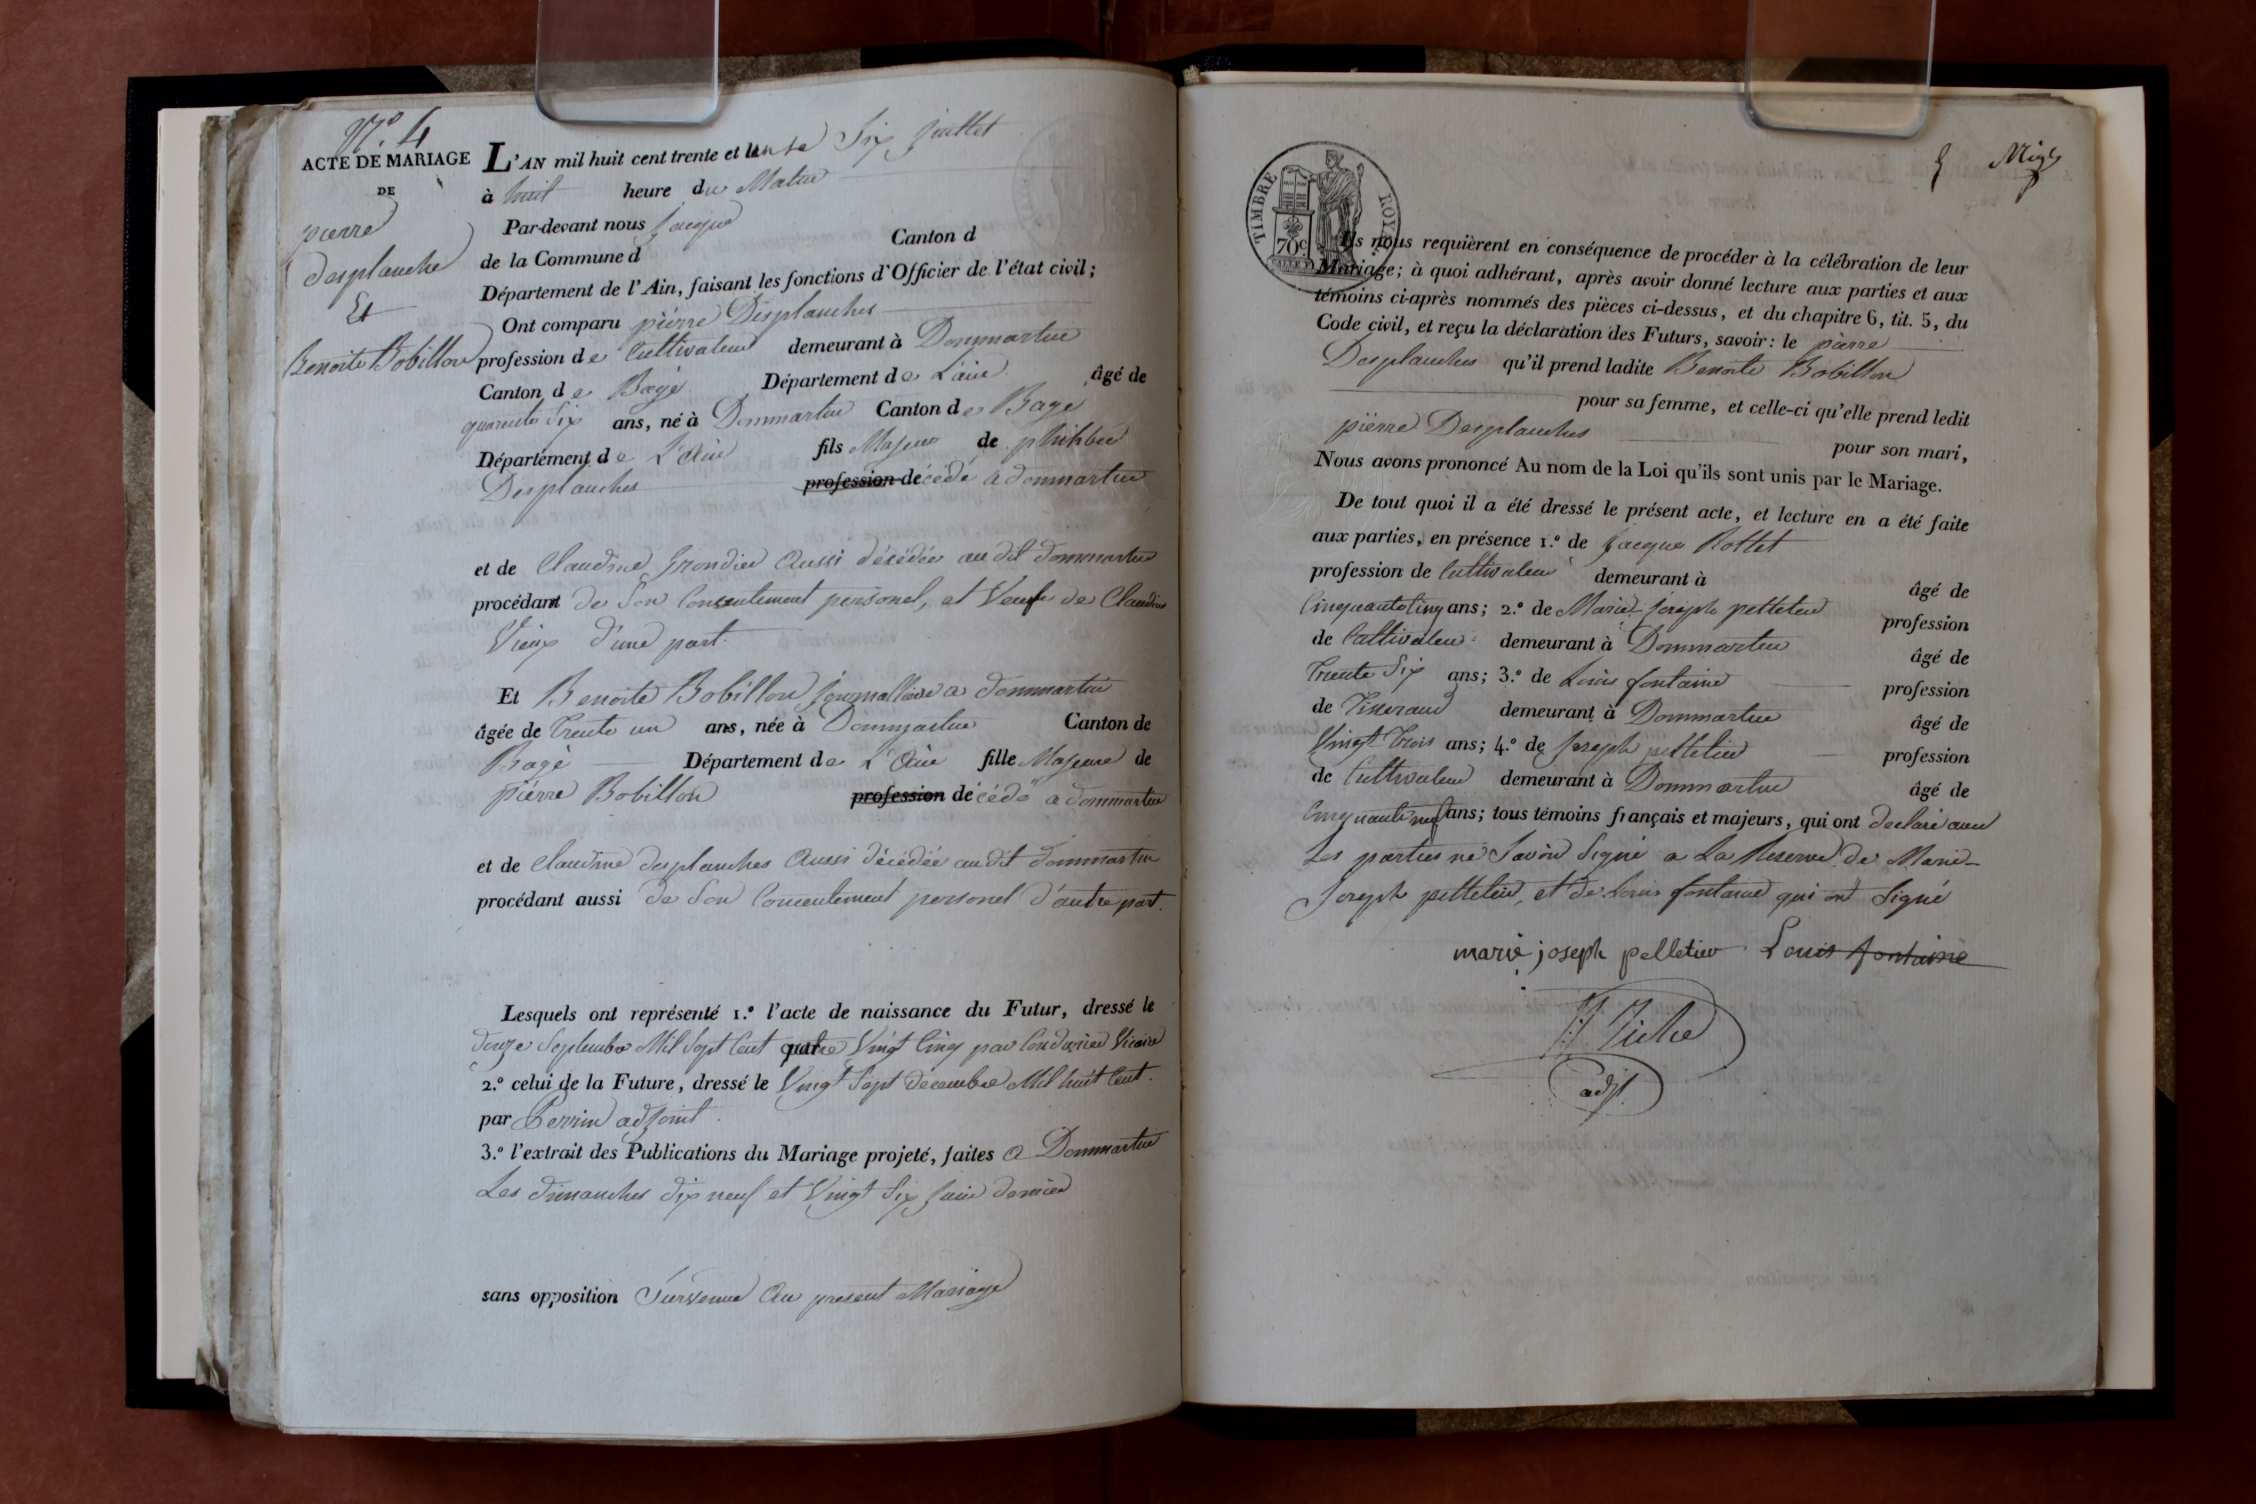 N.° 4
ACTE DE MARIAGE
DE
pierre
desplanche
Et
Benoite Bobillon
L'AN mil huit cent trente et Six Juillet
à huit heure du Matin
Par-devant nous Jacque
de la Commune d Canton d
Département de l'Ain, faisant les fonctions d'Officier de l'état civil;
Ont comparu pièrre Desplanches
profession de Cultivateur demeurant à Dommartin
Canton de Bagé Département de L'ain âgé de
quarente Six ans, né à Dommartin Canton de Bage
Département de L'Ain fils Majeur de philibert
Desplanches profession décédé a dommartin
et de Claudine Grondier Aussi décédée au dit dommartin
procédant de Son Consentement personel, et Veuf de Claudine
Vieux d'une part.
Et Benoite Bobillon Journallière a dommartin
âgée de trente un ans, née à Dommartin Canton de
Bagé Département de L'Ain fille Majeure de
pièrre Bobillon profession décédé a dommartin
et de Claudine desplanches Aussi décédée au dit dommartin
procédant aussi de Son Consentement personel d'autre part.
Lesquels ont représenté 1.° l'acte de naissance du Futur, dressé le
douze Septembre Mil Sept Cent quatre Vingt Cinq par Vicaire
2.° celui de la Future, dressé le Vingt Sept decembre Mil huit Cent.
par Perrin adjoint.
3.° l'extrait des Publications du Mariage projeté, faites a Dommartin
Les dimanches dix neuf et Vingt Six Juin dernier
sans opposition Survenue Au present Mariage
TIMBRE ROYAL
70c
Ils nous requièrent en conséquence de procéder à la célébration de leur
Mariage; à quoi adhérant, après avoir donné lecture aux parties et aux
témoins ci-après nommés des pièces ci-dessus, et du chapitre 6, tit. 5, du
Code civil, et reçu la déclaration des Futurs, savoir: le pièrre
Desplanches qu'il prend ladite Benoite Bobillon
pour sa femme, et celle-ci qu'elle prend ledit
pièrre Desplanches pour son mari,
Nous avons prononcé Au nom de la Loi qu'ils sont unis par le Mariage.
De tout quoi il a été dressé le présent acte, et lecture en a été faite
aux parties, en présence 1.° de Jacque Rottet
profession de Cultivateur demeurant à âgé de
Cinquante Cinq ans; 2.° de Marie Joseph pelletier profession
de Cultivateur demeurant à Dommartin âgé de
trente Six ans; 3.° de Louis fontaine profession
de Tisserand demeurant à Dommartin âgé de
Vingt trois ans; 4.° de Joseph pelletier profession
de Cultivateur demeurant à Dommartin âgé de
Cinquante neuf ans; tous témoins français et majeurs, qui ont declaré avec
Les parties ne Savoir Signé a La Reserve de Marie-
Joseph pelletier, et de Louis fontaine qui ont Signé
marie joseph pelletier Louis fontaine
adjt